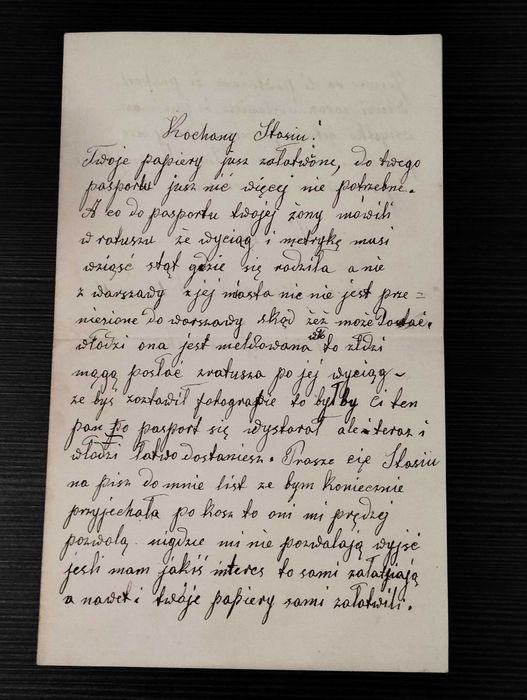 Kochany Stasiu!
Twoje papiery jusz załatwione, do twego
pasportu jusz nic więcej nie potrzebne.
A co do pasportu twojej żony mówili
w ratuszu że wyciąg i metrykę musi
wziąść stąt gdzie się rodziła a nie
z warszawy z jej miasta nic nie jest prze=
niesione do warszawy skąd żeż może dostać.
włodzi ona jest meldowana to wk złdzi
mągą posłac zratusza po jej wyciąg
że byś zoztawił fotografie to byłby Ci ten
pan po pasport się wystarał ale i teraz i
włodzi łatwo dostaniesz. Prasze cię Stasiu
na pisz do mnie list ze bym koniecznie
przyjechała po kosz to oni mi prędzej
pozwolą. nigdzie mi nie pozwalają wyjść
jesli mam jakiś interes to sami załatwiają
a nawet i twóje papiery sami załatwili.